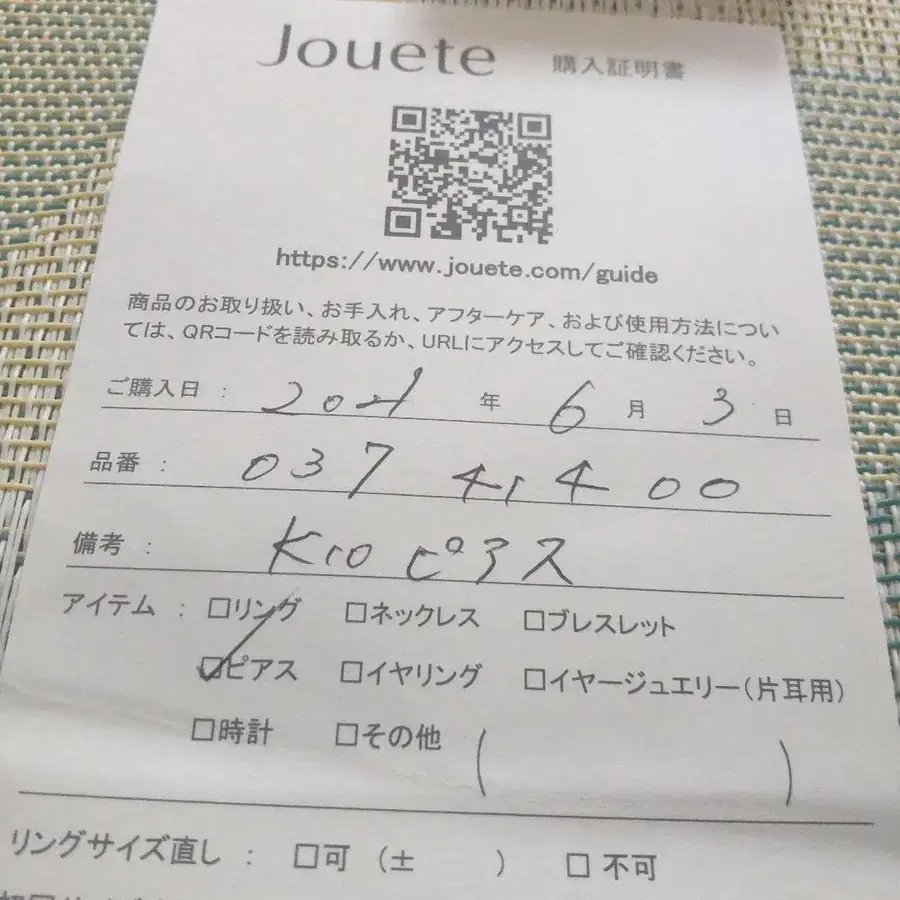 Jouete 購入証明書
https://www.jouete.com/guide
商品のお取り扱い、お手入れ、アフターケア、および使用方法につい
ては、QRコードを読み取るか、URLにアクセスしてご確認ください。
ご購入日 : 2021 年 6 月 3 日
品番 : 037 41400
備考 : K10 ピアス
アイテム : □リング □ネックレス □ブレスレット
☑ピアス □イヤリング □イヤージュエリー(片耳用)
□時計 □その他 ( )
リングサイズ直し : □可 (± ) □不可